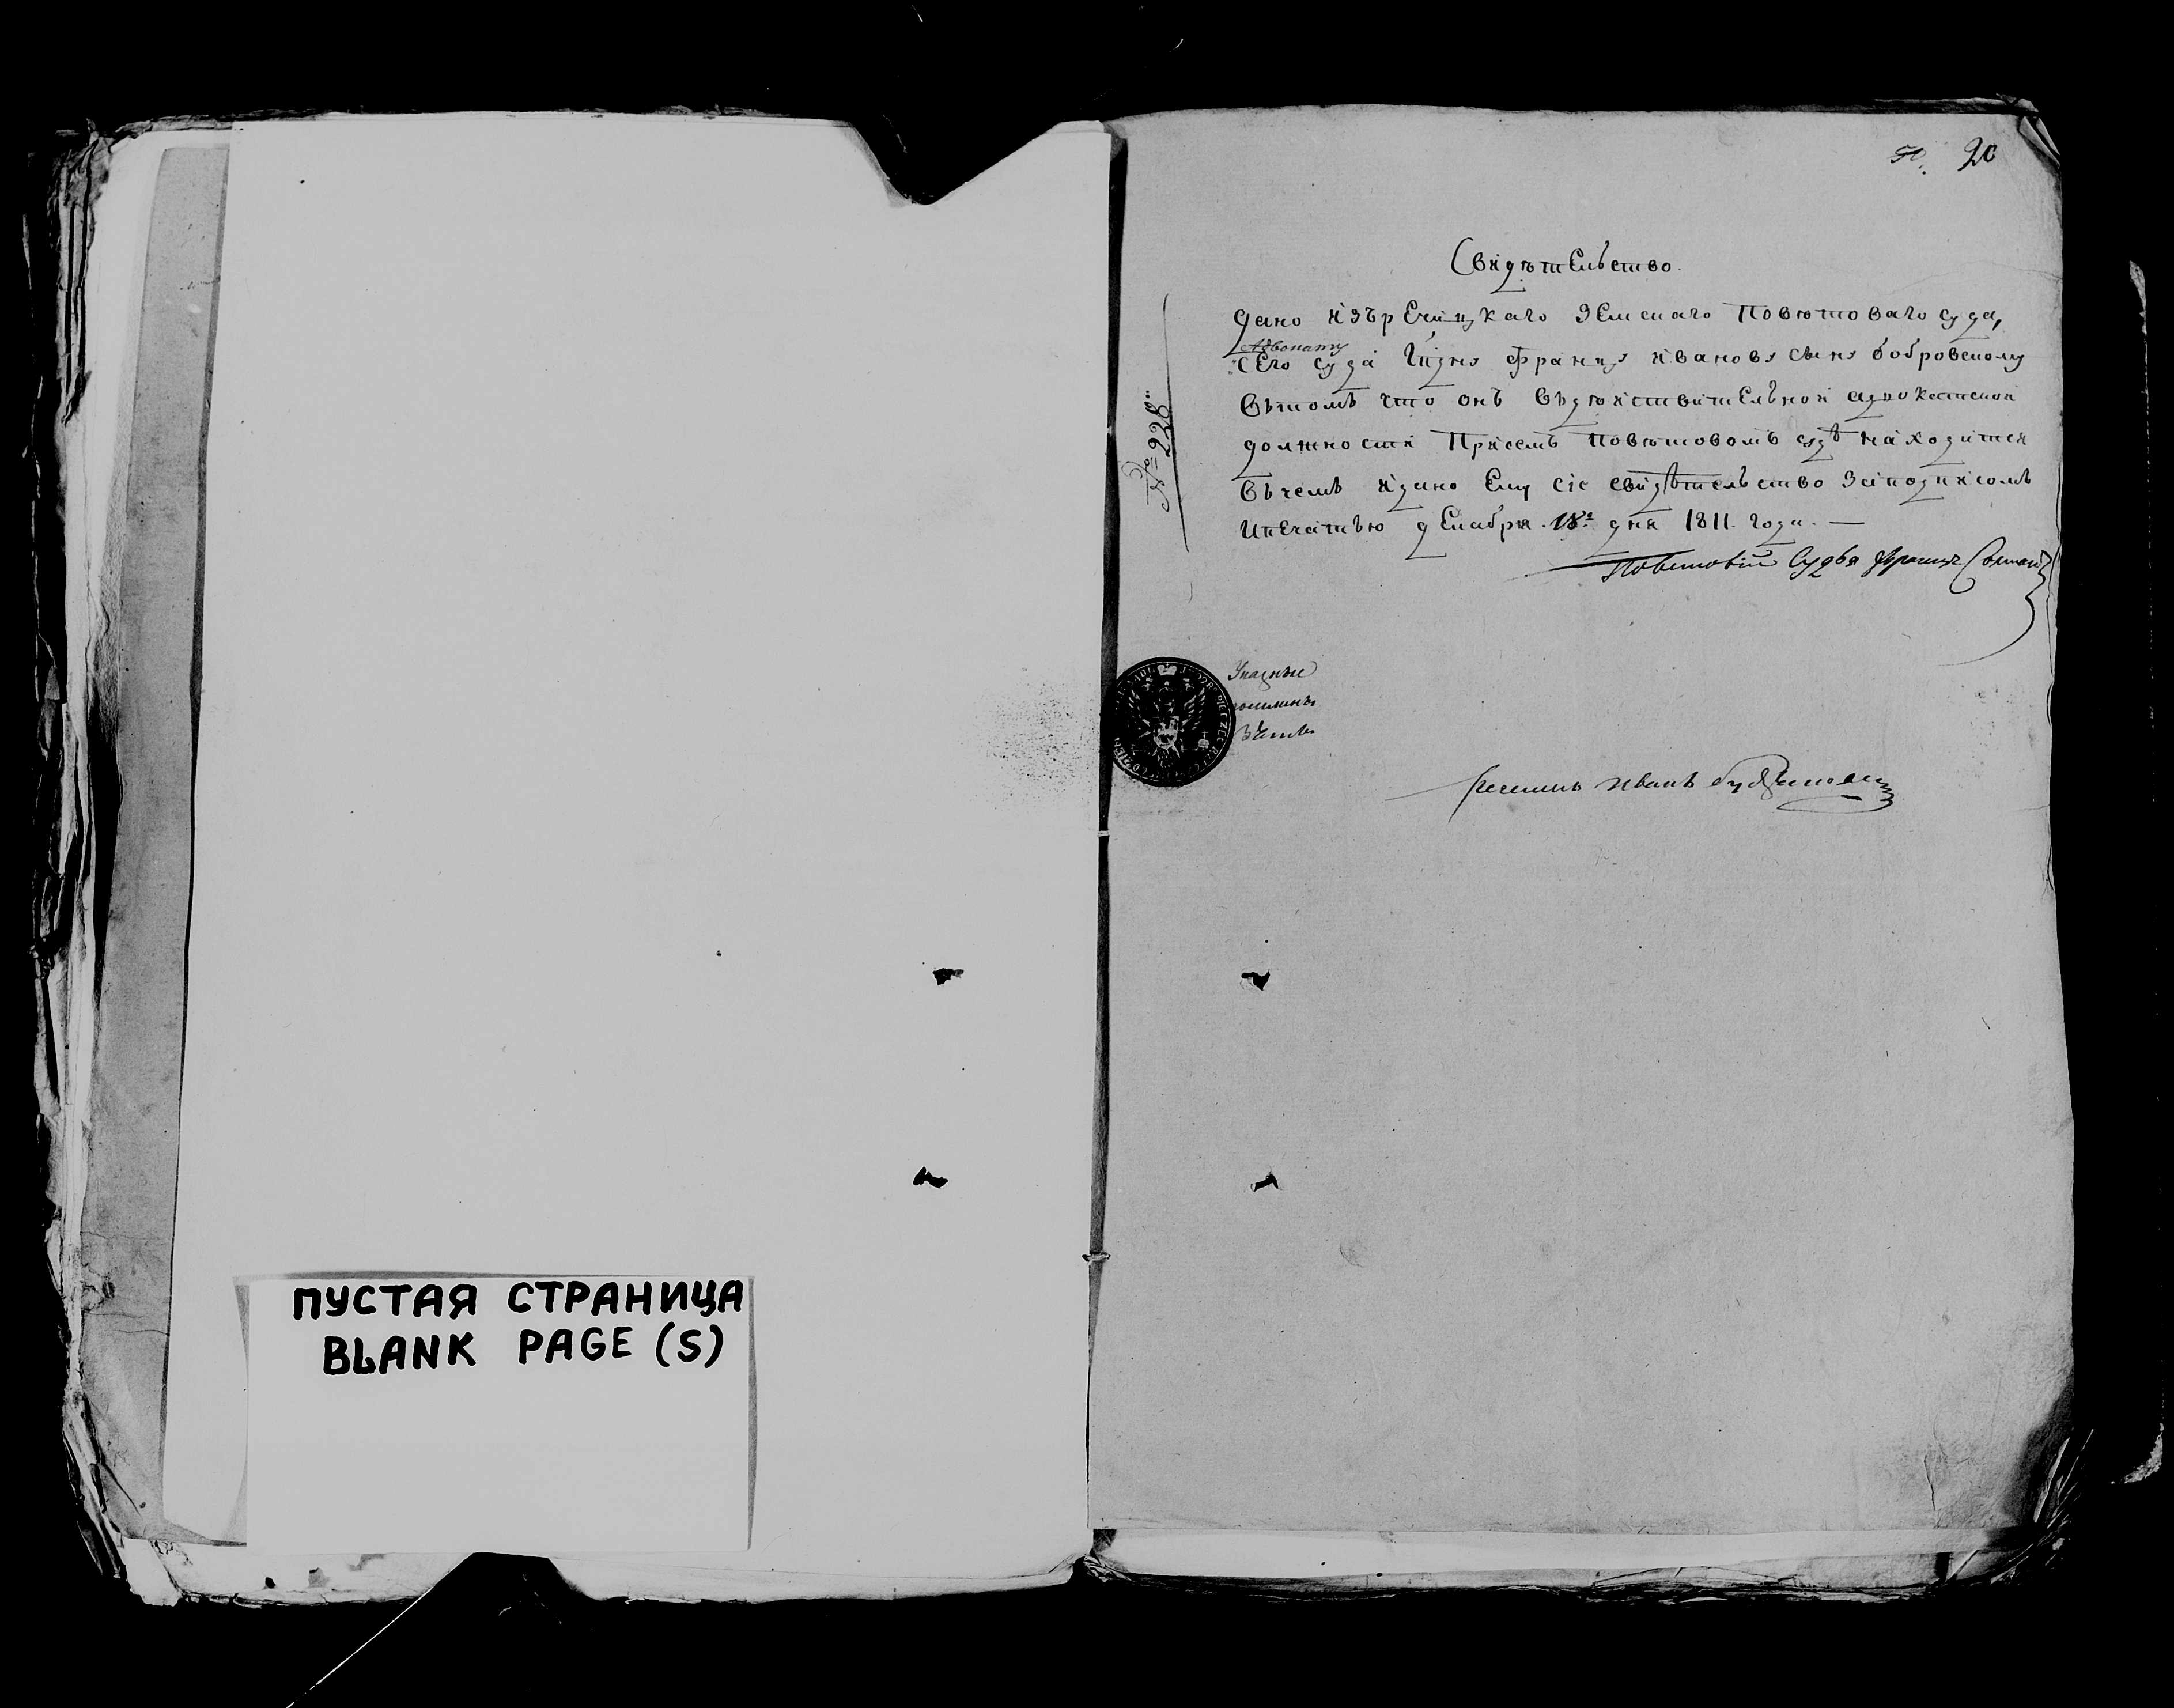 ПУСТАЯ СТРАНИЦА
BLANK PAGE (S)
20
Свидѣтельство.
Дано изъ Речицкаго Земскаго Повѣтоваго суда,
Адвокату
сего суда Гпдну Францу Иванову сыну бобровскому
Въ томъ что онъ Въ дѣйствительной адвокатской
должности При семъ Повѣтовомъ судѣ находится
Въ чемъ и дано Ему сіе свидѣтельство За подписомъ
и печатью декабря 18г дня 1811 года. —
Повѣтовій Судья Францъ
№ 228
Указные
пошлины
Взяты
Регентъ Иванъ